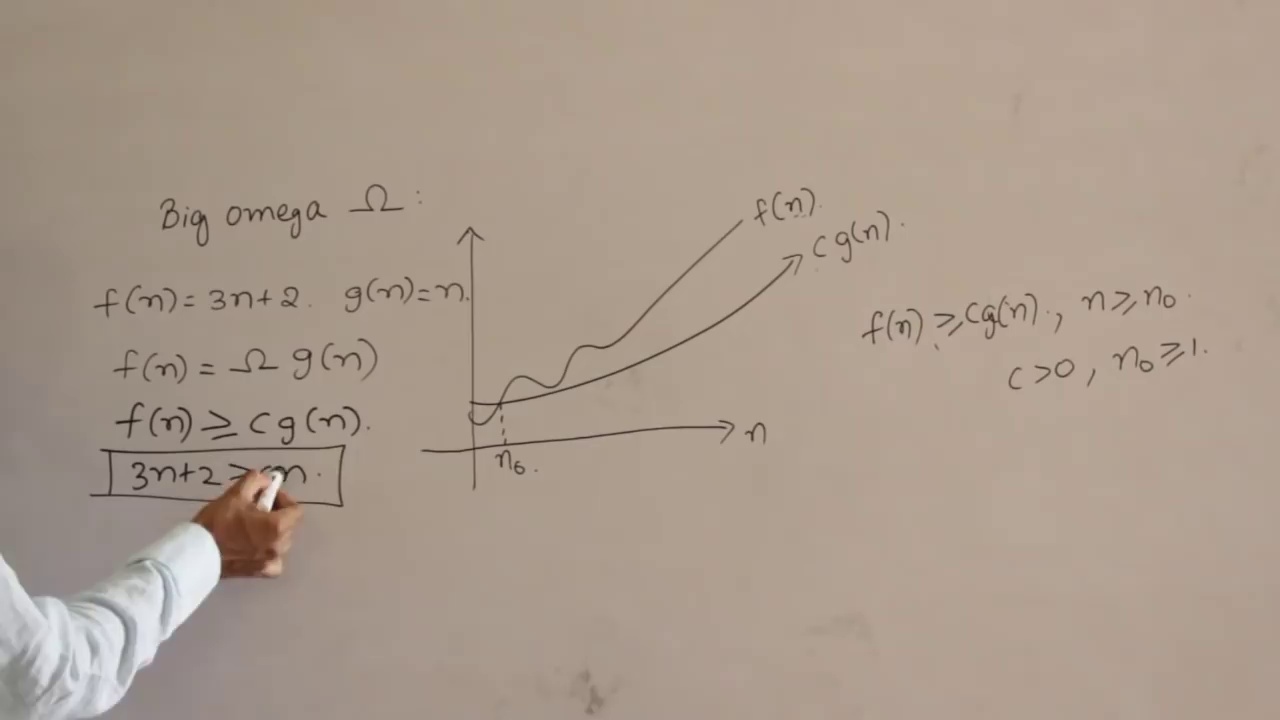 Big omega Ω :
f(n) = 3n+2. g(n) = n.
f(n) = Ω g(n)
f(n) ≥ c g(n).
3n+2 ≥ n.
f(n).
c g(n).
n
n₀.
f(n) ≥ c g(n)., n ≥ n₀.
c > 0, n₀ ≥ 1.